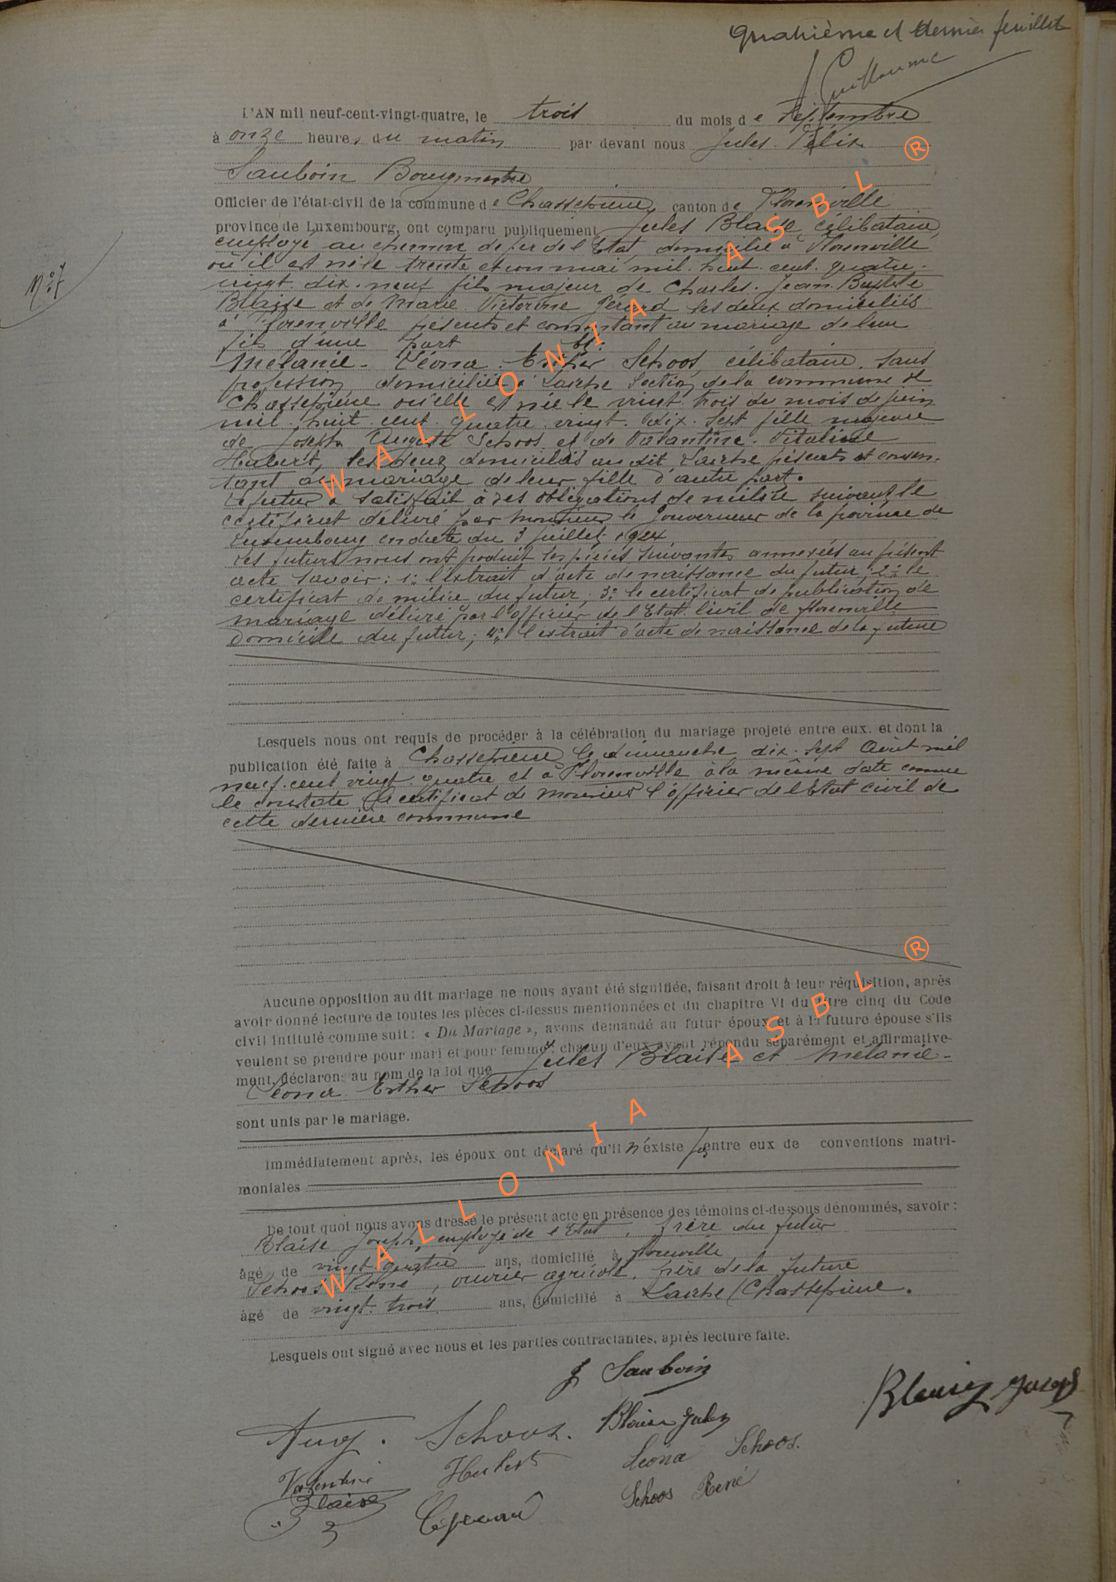 Quatrième et dernier feuillet
J. Guillaume
L'AN mil neuf-cent-vingt-quatre, le trois du mois de septembre
à onze heures du matin par devant nous Jules Félix
Sauboin Bourgmestre
Officier de l'état-civil de la commune de Chassepierre, canton de Florenville
province de Luxembourg, ont comparu publiquement Jules Blaise, célibataire
employé au chemin de fer de l'Etat domicilié à Florenville
où il est né le trente et un mai mil huit cent quatre-
N° 7
vingt dix-neuf fils majeur de Charles Jean Baptiste
Blaise et de Marie Victorine Gérard les deux domiciliés
à Florenville présents et consentant au mariage de leur
fils d'une part Et
Mélanie-Léona-Esther Schoos célibataire, sans
profession, domiciliée à Laiche Section de la commune de
Chassepierre où elle est née le vingt trois du mois de juin
mil huit cent quatre vingt dix sept fille majeure
de Joseph Auguste Schoos et de Valantine Vitaline
Hubert, les deux domiciliés au dit Laiche présents et consen-
tant au mariage de leur fille d'autre part.
Le futur a satisfait à ses obligations de milice suivant le
certificat délivré par Monsieur le Gouverneur de la province de
Luxembourg en date du 3 juillet 1924
Les futurs nous ont produit les pièces suivantes annexées au présent
acte savoir: 1: l'extrait d'acte de naissance du futur; 2: le
certificat de milice du futur; 3: le certificat de publication de
mariage délivré par l'officier de l'Etat civil de Florenville
domicile du futur; 4: l'extrait d'acte de naissance de la future
Lesquels nous ont requis de procéder à la célébration du mariage projeté entre eux, et dont la
publication été faite à Chassepierre le dimanche dix-sept Août mil
neuf-cent vingt quatre et à Florenville à la même date comme
le constate le certificat de monsieur l'officier de l'Etat civil de
cette dernière commune
Aucune opposition au dit mariage ne nous ayant été signifiée, faisant droit à leur réquisition, après
avoir donné lecture de toutes les pièces ci-dessus mentionnées et du chapitre VI du titre cinq du Code
civil intitulé comme suit: « Du Mariage », avons demandé au futur époux et à la future épouse s'ils
veulent se prendre pour mari et pour femme; chacun d'eux ayant répondu séparément et affirmative-
ment, déclarons au nom de la loi que Jules Blaise et Mélanie-
Léona Esther Schoos
sont unis par le mariage.
Immédiatement après, les époux ont déclaré qu'il n'existe pas entre eux de conventions matri-
moniales
De tout quoi nous avons dressé le présent acte en présence des témoins ci-dessous dénommés, savoir:
Blaise Joseph, employé de l'Etat, frère du futur
âgé de vingt quatre ans, domicilié à Florenville
Schoos René, ouvrier agricole, frère de la future
âgé de vingt-trois ans, domicilié à Laiche (Chassepierre.
Lesquels ont signé avec nous et les parties contractantes, après lecture faite.
J Sauboin
Aug. Schoos. Blaise Jules Blaise Joseph
Valentine Hubert Leona Schoos.
Blaise Gérard Schoos René
WALLONIA ASBL ®
WALLONIA ASBL ®